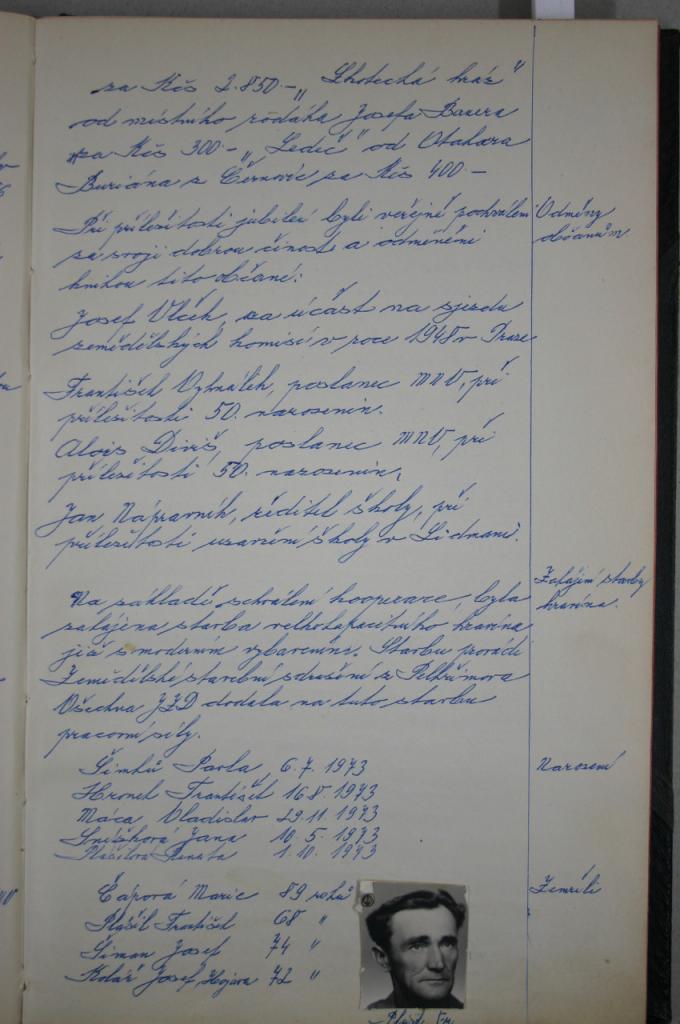 za Kčs 2.850 - „Lhotecká hráz"
od místního rodáka Josefa Bauera
za Kčs 300 - „Ledeč" od Otakara
Buriána z Černovic za Kčs 400 -
Při příležitosti jubilea byli veřejně pochváleni
za svoji dobrou činost a odměněni
knihou tito občané:
Odměny
občanům
Josef Vlček, za účast na sjezdu
zemědělských komisí v roce 1948 v Praze
František Vytnálek, poslanec MNV, při
příležitosti 50. narozenin.
Alois Diviš, poslanec MNV, při
příležitosti 50. narozenin.
Jan Nápravník, ředitel školy, při
příležitosti uzavření školy v Lidmani.
Na základě schválení kooperace, byla
zahájena stavba velkokapacitního kravína
již s moderním vybavením. Stavbu provádí
Zemědělské stavební sdružení z Pelhřimova
Všechna JZD dodala na tuto stavbu
pracovní síly.
Zahájení stavby
kravína.
Šimků Pavla 6.7. 1973
Hronek František 16.8. 1973
Máca Vladislav 29.11 1973
Jana 10.5. 1973
Plášilová Renata 1.10. 1973
Narození
Čápová Marie 89 roků
Plášil František 68 "
Šiman Josef 74 "
Kolář Josef Hojava 72 "
Zemřeli
Plášil Fr.